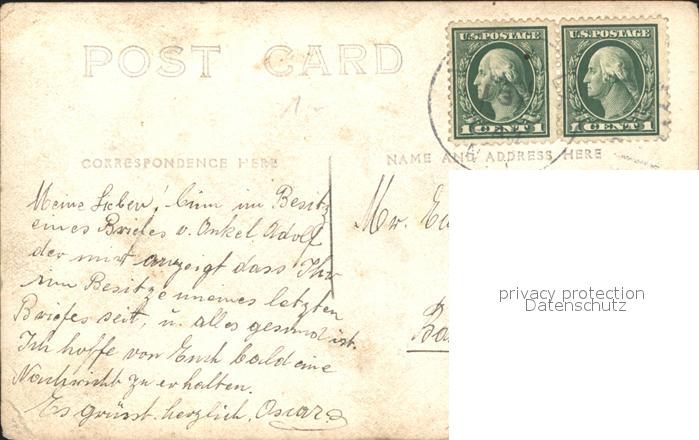 POST CARD
U.S. POSTAGE
1 CENT 1
U.S. POSTAGE
1 CENT 1
CORRESPONDENCE HERE
NAME AND ADDRESS HERE
Meine Lieben! bin im Besitz
eines Briefes v. Onkel Adolf
der mir anzeigt dass Ihr
im Besitze meines letzten
Briefes seit, u. alles gesund ist.
Ich hoffe von Euch bald eine
Nachricht zu erhalten.
Es grüsst herzlich Oscar
Mr.
privacy protection
Datenschutz